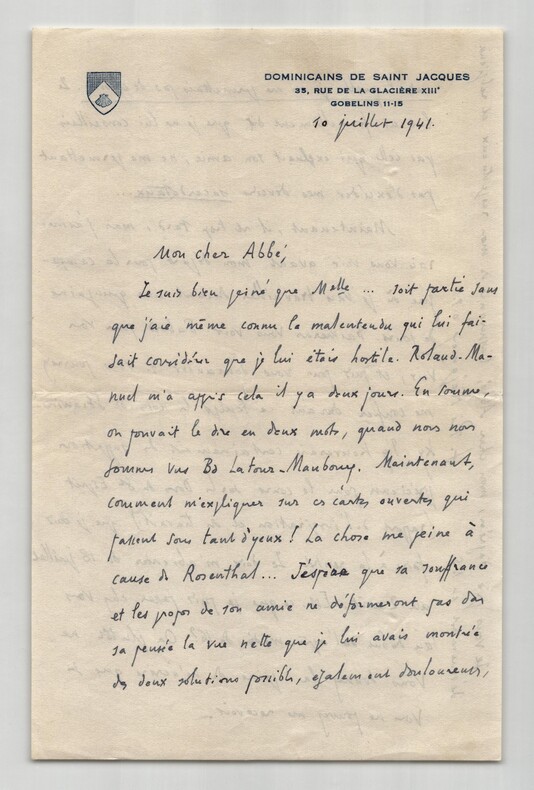 DOMINICAINS DE SAINT JACQUES
35, RUE DE LA GLACIÈRE XIIIᵉ
GOBELINS 11-15
10 juillet 1941.
Mon cher Abbé,
Je suis bien peiné que Melle ... soit partie sans
que j'aie même connu le malentendu qui lui fai-
sait considérer que je lui étais hostile. Roland-Ma-
nuel m'a appris cela il y a deux jours. En somme,
on pouvait le dire en deux mots, quand nous nous
sommes vus Bd Latour-Maubourg. Maintenant,
comment m'expliquer sur ces cartes ouvertes qui
passent sous tant d'yeux ! La chose me peine à
cause de Rosenthal... J'espère que sa souffrance
et les propos de son amie ne déformeront pas dans
sa pensée la vue nette que je lui avais montrée
des deux solutions possibles, également douloureuses,